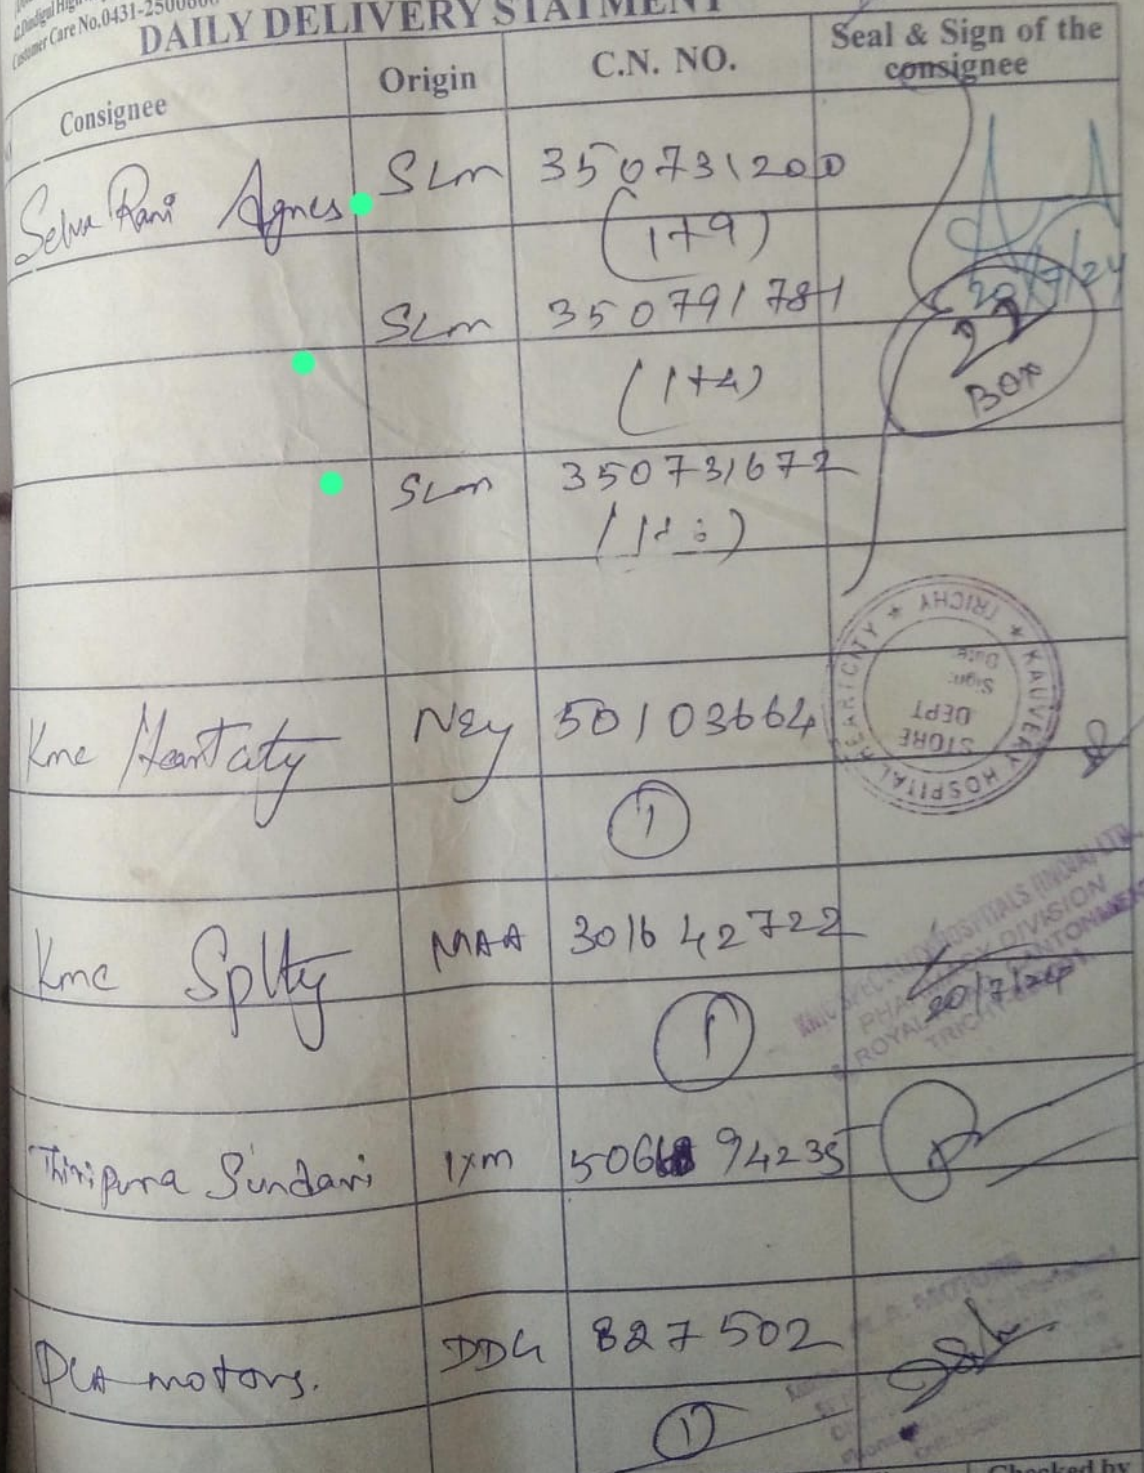 Customer Care No.0431-2500
DAILY DELIVERY STATMENT
Consignee Origin C.N. NO. Seal & Sign of the consignee
Selva Rani Agnes SLm 350731200
(1+9)
20/7/24
SLm 350791781
22 BOX
(1+4)
SLm 350731672
KAUVERY HOSPITAL HEARTCITY TRICHY
STORE DEPT
Sign:
Date:
Kmc Heartcity NEy 50103664
1
Kmc Splty MAA 301642722
1
HOSPITALS (INDIA) LTD
PHARMACY DIVISION
ROYAL CANTONMENT
20/7/24
Thiripura Sundari IXM 506 94235
PLA motors. DDG 827502
MOTORS
1
Checked by